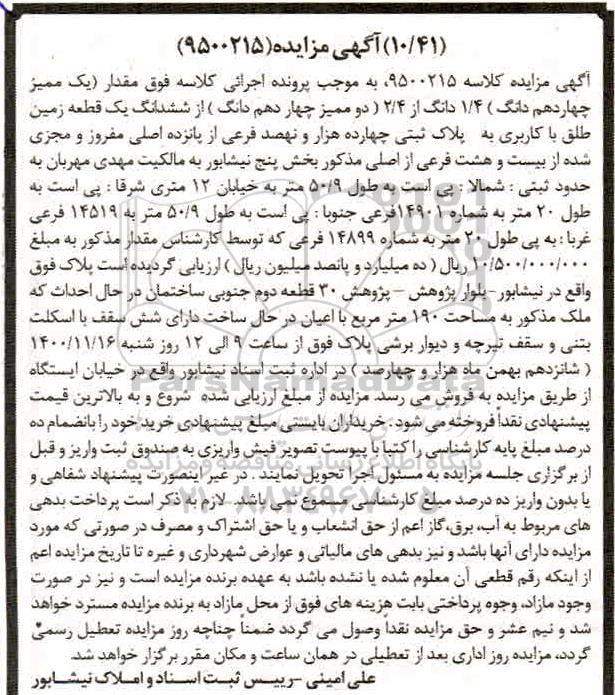 (۱۰/۴۱) آگهی مزایده (۹۵۰۰۲۱۵)
آگهی مزایده کلاسه ۹۵۰۰۲۱۵، به موجب پرونده اجرائی کلاسه فوق مقدار (یک ممیز
چهاردهم دانگ ) ۱/۴ دانگ از ۲/۴ ( دو ممیز چهار دهم دانگ ) از ششدانگ یک قطعه زمین
طلق با کاربری به پلاک ثبتی چهارده هزار و نهصد فرعی از پانزده اصلی مفروز و مجزی
شده از بیست و هشت فرعی از اصلی مذکور بخش پنج نیشابور به مالکیت مهدی مهربان به
حدود ثبتی : شمالا : پی است به طول ۵۰/۹ متر به خیابان ۱۲ متری شرقا : پی است به
طول ۲۰ متر به شماره ۱۴۹۰۱فرعی جنوبا : پی است به طول ۵۰/۹ متر به ۱۴۵۱۹ فرعی
غربا : به پی طول ۲۰ متر به شماره ۱۴۸۹۹ فرعی که توسط کارشناس مقدار مذکور به مبلغ
۱۰/۵۰۰/۰۰۰/۰۰۰ ریال ( ده میلیارد و پانصد میلیون ریال ) ارزیابی گردیده است پلاک فوق
واقع در نیشابور-بلوار پژوهش – پژوهش ۳۰ قطعه دوم جنوبی ساختمان در حال احداث که
ملک مذکور به مساحت ۱۹۰ متر مربع با اعیان در حال ساخت دارای شش سقف با اسکلت
بتنی و سقف تیرچه و دیوار برشی پلاک فوق از ساعت ۹ الی ۱۲ روز شنبه ۱۴۰۰/۱۱/۱۶
( شانزدهم بهمن ماه هزار و چهارصد ) در اداره ثبت اسناد نیشابور واقع در خیابان ایستگاه
از طریق مزایده به فروش می رسد. مزایده از مبلغ ارزیابی شده شروع و به بالاترین قیمت
پیشنهادی نقداً فروخته می شود : خریداران بایستی مبلغ پیشنهادی خرید خود را بانضمام ده
درصد مبلغ پایه کارشناسی را کتباً با پیوست تصویر فیش واریزی به صندوق ثبت واریز و قبل
از برگزاری جلسه مزایده به مسئول اجرا تحویل نمایند . در غیر اینصورت پیشنهاد شفاهی و
یا بدون واریز ده درصد مبلغ کارشناسی مسموع نمی باشد. لازم به ذکر است پرداخت بدهی
های مربوط به آب، برق،گاز اعم از حق انشعاب و یا حق اشتراک و مصرف در صورتی که مورد
مزایده دارای آنها باشد و نیز بدهی های مالیاتی و عوارض شهرداری و غیره تا تاریخ مزایده اعم
از اینکه رقم قطعی آن معلوم شده یا نشده باشد به عهده برنده مزایده است و نیز در صورت
وجود مازاد، وجوه پرداختی بابت هزینه های فوق از محل مازاد به برنده مزایده مسترد خواهد
شد و نیم عشر و حق مزایده نقداً وصول می گردد ضمناً چناچه روز مزایده تعطیل رسمی
گردد، مزایده روز اداری بعد از تعطیلی در همان ساعت و مکان مقرر برگزار خواهد شد.
علی امینی -رییس ثبت اسناد و املاک نیشابور
ParsNamadData
پایگاه اطلاع رسانی مناقصه و مزایده
۰۲۱-۸۸۳۴۹۶۷۰-۵